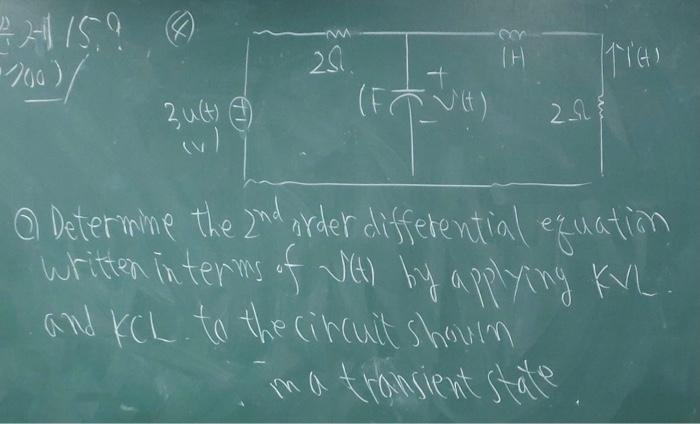 15.9
(8)
2Ω
1H
↑i(t)
3u(t)
(v)
1F
+
-
v(t)
2Ω
① Determine the 2nd order differential equation
written in terms of v(t) by applying KVL.
and KCL. to the circuit shown
in a transient state.